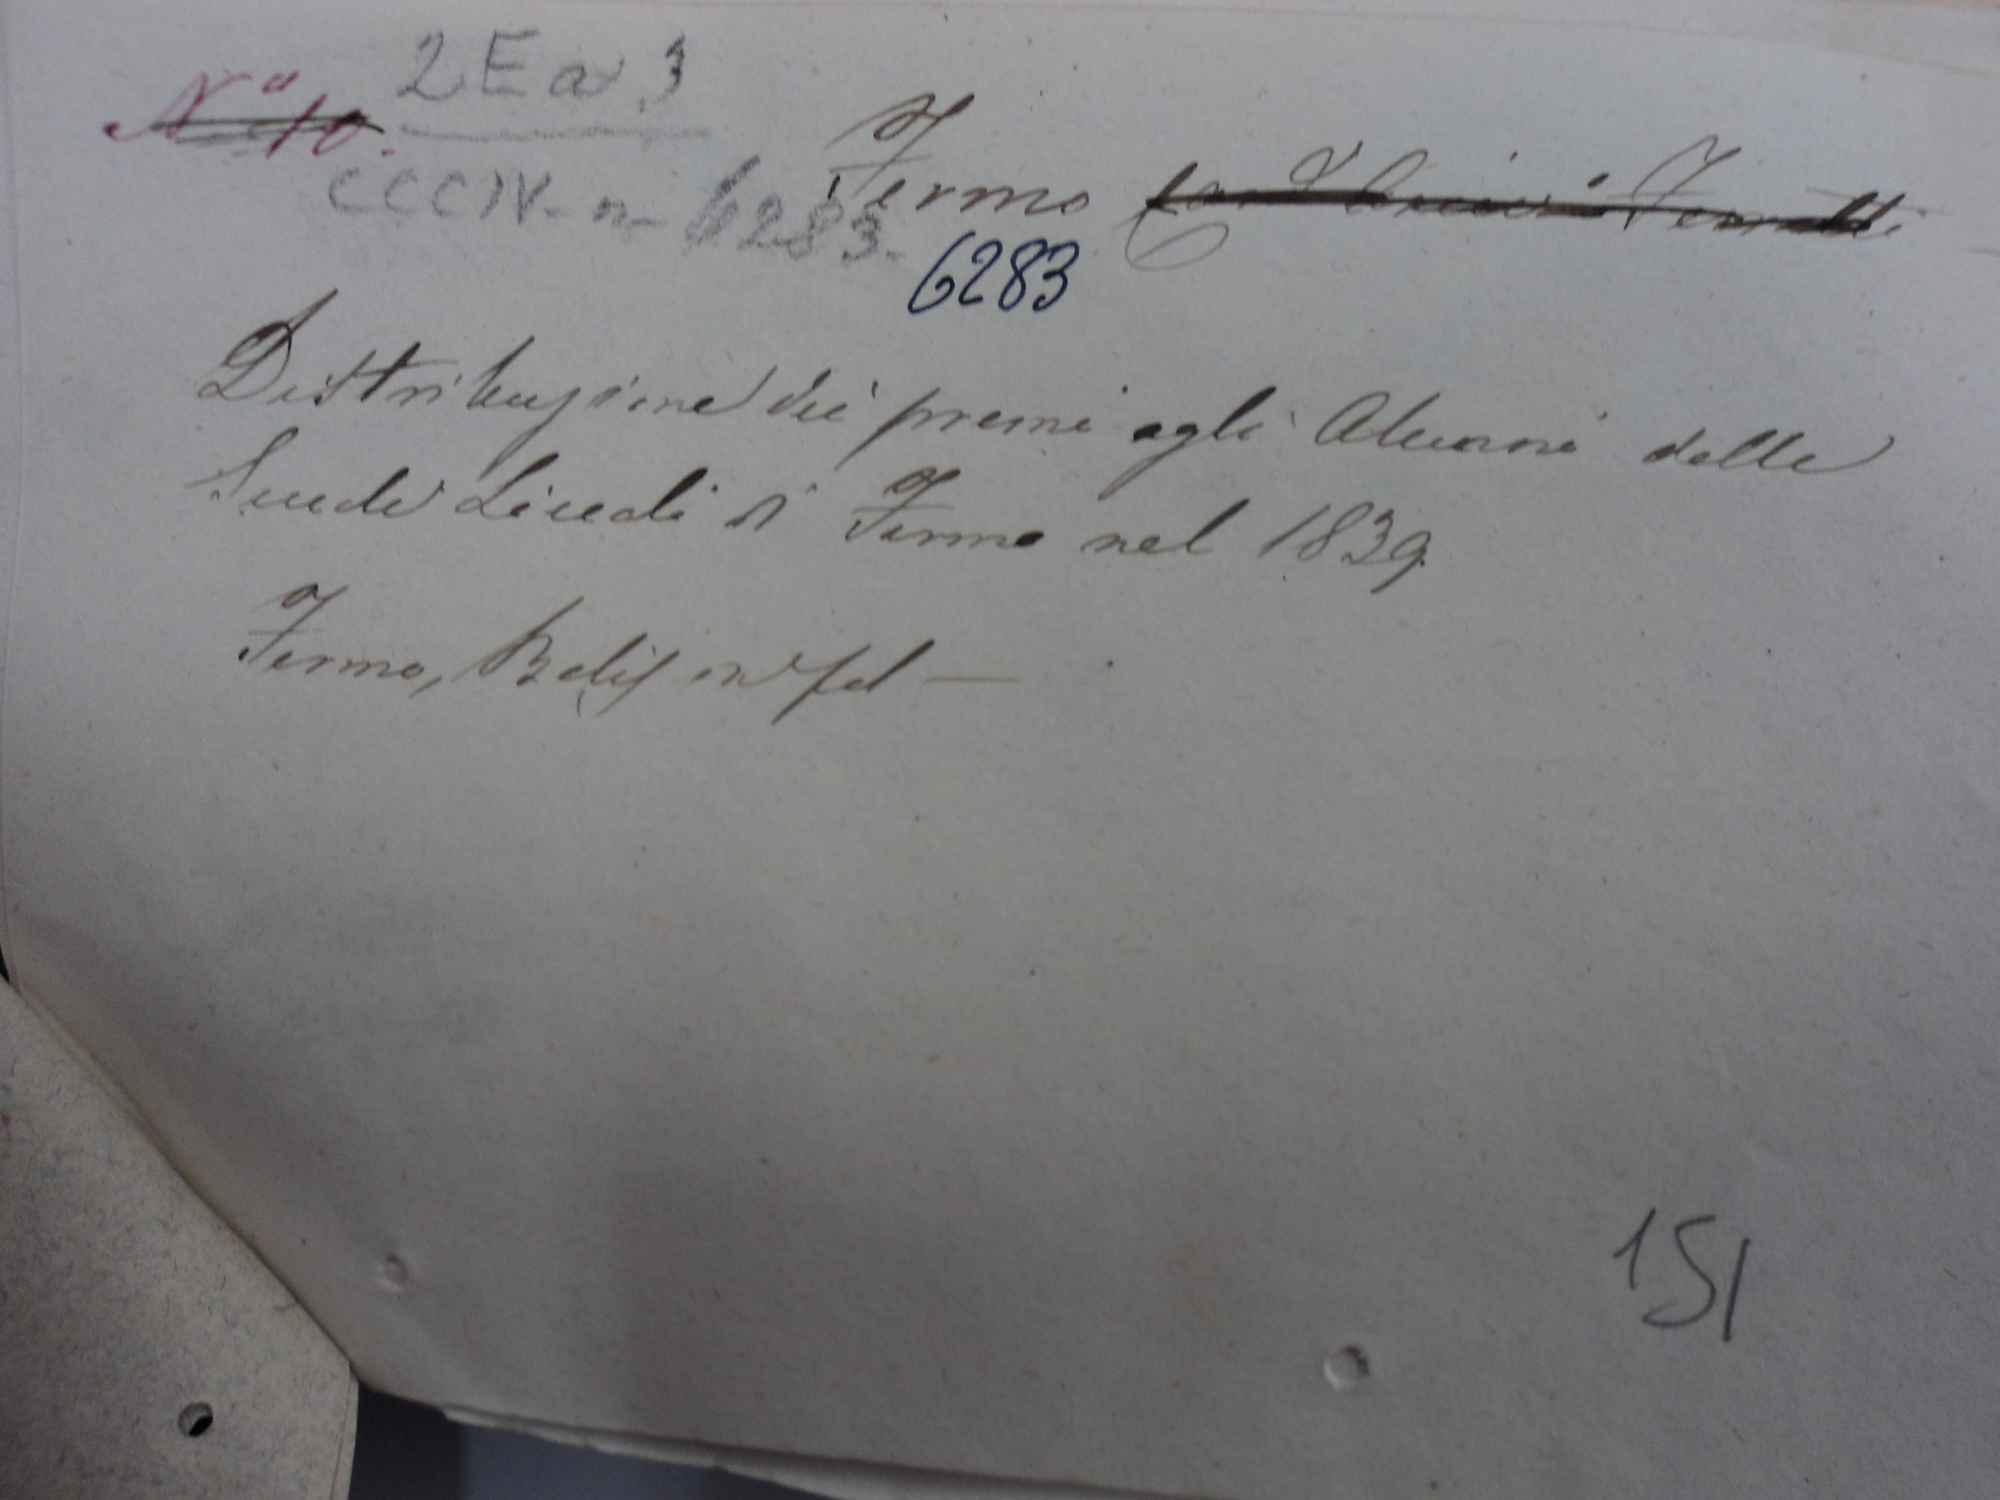 2 E a 3
N° 10.
CCCIV - n - 6283.
Fermo
6283
Distribuzione dei premi agli Alunni delle
Scuole Liceali di Fermo nel 1839.
Fermo, in fol —
151